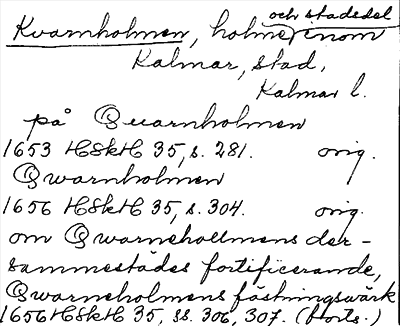 och stadsdel
Kvarnholmen, holme inom
Kalmar, stad,
Kalmar l.
på Quarnholmen
1653 HSkH 35, s. 281. orig.
Qwarnholmen
1656 HSkH 35, s. 304. orig.
om Qwarnehollmens der-
sammestädes fortificerande,
Qwarneholmens fästningswärk
1656 HSkH 35, ss. 306, 307. (forts.)